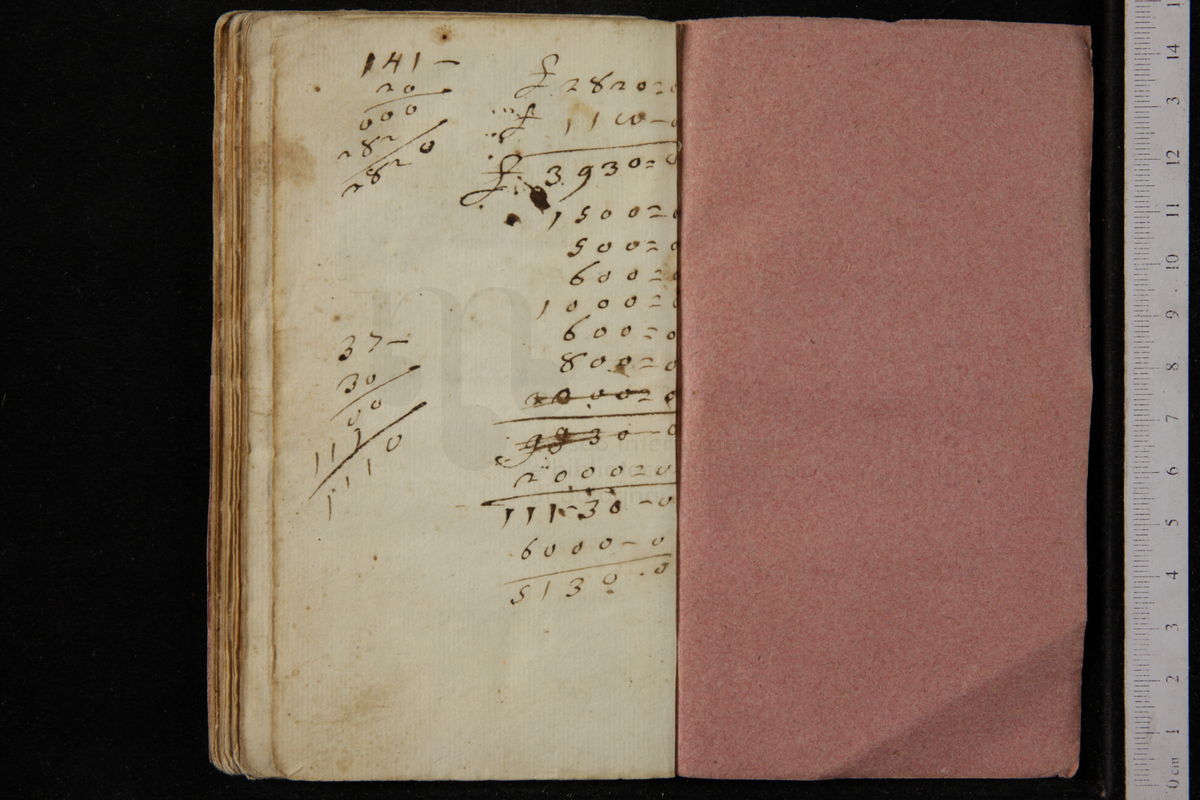 141 –
20
000
282
2820
37 –
30
00
111
1110
f 2820 = 0
f 1110 – 0
f 3930 = 0
1500 = 0
500 = 0
600 = 0
1000 = 0
600 = 0
800 = 0
2000 = 0
9930 – 0
2000 = 0
11130 – 0
6000 – 0
5130 . 0
14
3
12
11
10
9
8
7
6
5
4
3
2
1
0 cm